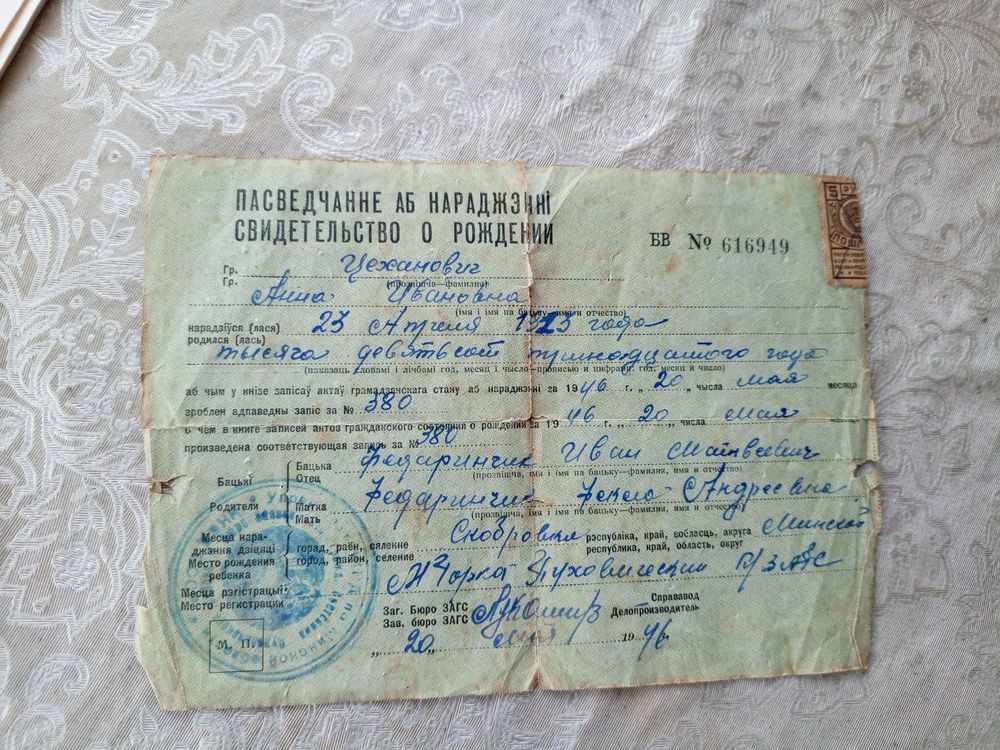 ПАСВЕДЧАННЕ АБ НАРАДЖЭННІ
СВИДЕТЕЛЬСТВО О РОЖДЕНИИ
БВ № 616949
5 РУ
ПОШЛ
Гр. Цеханович
Гр.
(прозвішча—фамилия)
Анна Ивановна
(імя і імя па бацьку—имя и отчество)
нарадзіўся (лася) 23 Апреля 1913 года
родился (лась)
тысяча девятьсот тринадцатого года
(паказаць словамі і лічбамі год, месяц і чысло—прописью и цифрами год, месяц и число)
аб чым у кнізе запісаў актаў грамадзянскага стану аб нараджэнні за 1946 г. „20„ чысла мая месяца
зроблен адпаведны запіс за № 380
о чем в книге записей актов гражданского состояния о рождении за 1946 20 числа мая
произведена соответствующая запись за № 380
Бацькі Бацька Федаринчик Иван Матвеевич
Отец (прозвішча, імя і імя па бацьку—фамилия, имя и отчество)
Родители Матка Федаринчик Андреевна
Мать (прозвішча, імя і імя па бацьку—фамилия, имя и отчество)
Месца нараджэння дзіцяці горад, раён, сяленне Скобровка рэспубліка, край, вобласць, акруга Минской
Место рождения ребенка город, район, селение республика, край, область, округ
Месца рэгістрацыі М-Горка Пуховический
Место регистрации
Заг. Бюро ЗАГС Справавод
Зав. бюро ЗАГС Делопроизводитель
М. П.
„20„ мая 1946